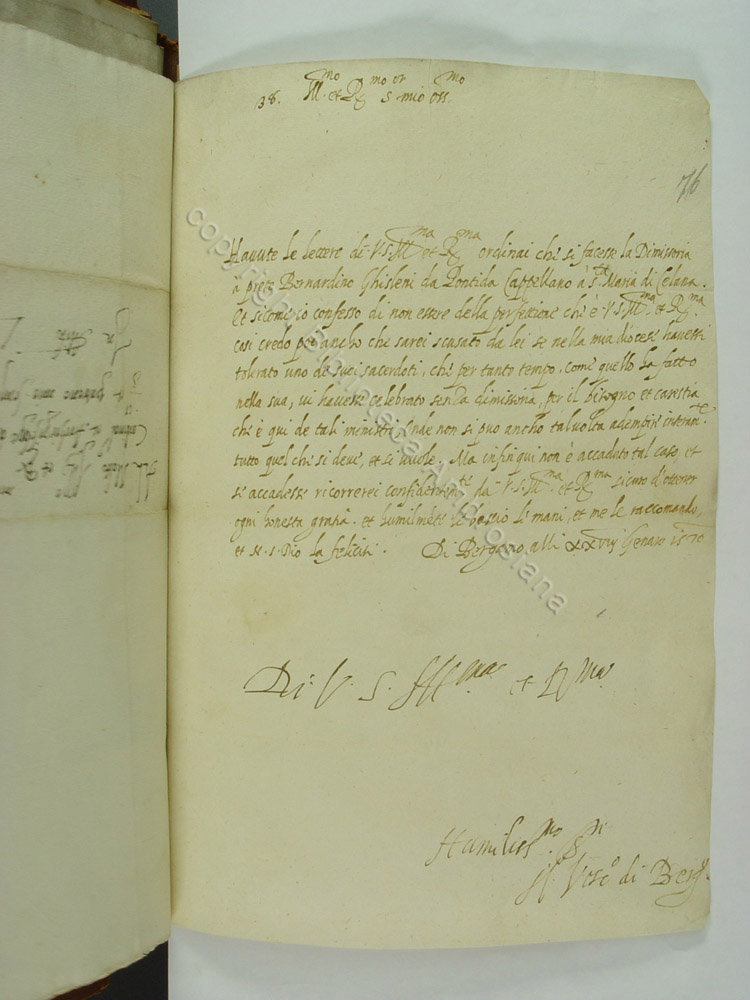 38. Ill.mo et R.mo S.or mio oss.mo
76
Havute le lettere di V.S. Ill.ma et R.ma ordinai che si facesse la Dimissoria
à prete Bernardino Ghisleni da Pontida Cappellano à S.ta Maria di Celana.
Et si come io confesso di non essere della perfettione che è V.S. Ill.ma et R.ma
cosi credo però ancho che sarei scusato da lei se nella mia diocesi havessi
tolerato uno de suoi sacerdoti, che per tanto tempo, come quello ha fatto
nella sua, vi havesse celebrato senza dimissoria, per il bisogno et carestia
che è qui de tali ministri. Onde non si puo ancho talvolta adempire interam.te
tutto quel che si deve, et si vuole. Ma infin qui non è accaduto tal caso, et
se accadesse ricorrerei confidentem.te da V.S. Ill.ma et R.ma sicuro d'ottener
ogni honesta gratia. et humilmẽte le bascio le mani, et me le raccomando,
et N.S. Dio la feliciti. Di Bergamo alli xxviij Genaro 1570
Di V. S. Ill.ma et R.ma
Humiliss.mo S.re
Il Vesc.o di Berg.o
copyright Biblioteca Ambrosiana